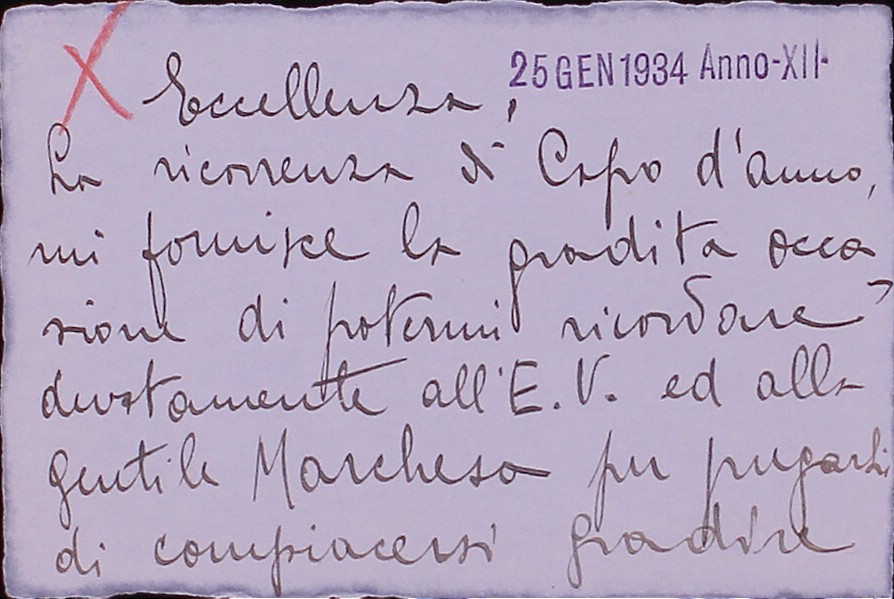 25 GEN 1934 Anno-XII-
Eccellenza,
La ricorrenza di Capo d'anno,
mi fornisce la gradita occa
sione di potermi ricordare
devotamente all'E.V. ed alla
gentile Marchesa per pregarLi
di compiacersi gradire